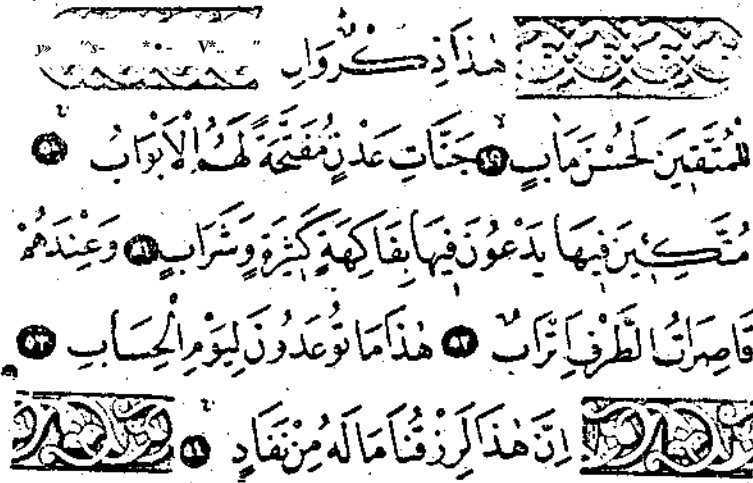 هٰذَا ذِكْرٌ وَاِنَّ
لِلْمُتَّقٖينَ لَحُسْنَ مَاٰبٍ ﴿٤٩﴾ جَنَّاتِ عَدْنٍ مُفَتَّحَةً لَهُمُ الْاَبْوَابُ ﴿٥٠﴾
مُتَّكِـٖٔينَ فٖيهَا يَدْعُونَ فٖيهَا بِفَاكِهَةٍ كَثٖيرَةٍ وَشَرَابٍ ﴿٥١﴾ وَعِنْدَهُمْ
قَاصِرَاتُ الطَّرْفِ اَتْرَابٌ ﴿٥٢﴾ هٰذَا مَا تُوعَدُونَ لِيَوْمِ الْحِسَابِ ﴿٥٣﴾
اِنَّ هٰذَا لَرِزْقُنَا مَا لَهُ مِنْ نَفَادٍ ﴿٥٤﴾